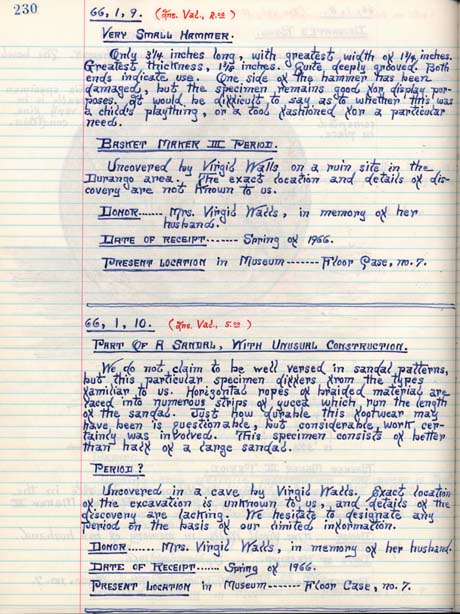 230
66, 1, 9. (Ins. Val., 2.00)
Very Small Hammer.
Only 3¼ inches long, with greatest width of 1¼ inches.
Greatest thickness, 1½ inches. Quite deeply grooved. Both
ends indicate use. One side of the hammer has been
damaged, but the specimen remains good for display pur-
poses. It would be difficult to say as to whether this was
a child's plaything, or a tool fashioned for a particular
need.
Basket Maker III Period.
Uncovered by Virgil Walls, on a ruin site in the
Durango area. The exact location and details of dis-
covery are not known to us.
Donor....... Mrs. Virgil Walls, in memory of her
husband.
Date of receipt------- Spring of 1966.
Present location in Museum------- Floor Case, no. 7.
66, 1, 10. (Ins. Val., 5.00)
Part Of A Sandal, With Unusual Construction.
We do not claim to be well versed in sandal patterns,
but this particular specimen differs from the types
familiar to us. Horizontal ropes of braided material are
laced into numerous strips of yucca which run the length
of the sandal. Just how durable this footwear may
have been is questionable, but considerable work cer-
tainly was involved. This specimen consists of better
than half of a large sandal.
Period?
Uncovered in a cave by Virgil Walls. Exact location
of the excavation is unknown to us, and details of the
discovery are lacking. We hesitate to designate any
period on the basis of our limited information.
Donor....... Mrs. Virgil Walls, in memory of her husband.
Date of Receipt------ Spring of 1966.
Present Location in Museum------- Floor Case, no. 7.